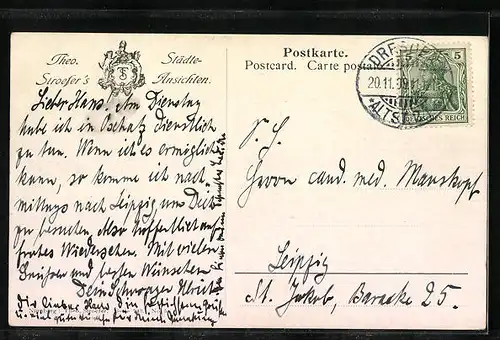 Theo. Stroefer's
Städte-Ansichten.
TS
Postkarte.
Postcard. Carte postale
DRESDEN
20.11.09.
* ALTST.
5
DEUTSCHES REICH
Lieber Hans. Am Dienstag
habe ich in Oschatz dienstlich
zu tun. Wenn ich es ermöglichen
kann, so komme ich nach-
mittags nach Leipzig um Dich
zu besuchen. Also hoffentlich auf
frohes Wiedersehen. Mit vielen
Grüßen und besten Wünschen
Dein Schwager
Dir lieber Hans die herzlichsten Grüße
S. H.
Herrn cand. med. Manskopf
Leipzig
St. Jakob, Baracke 25.